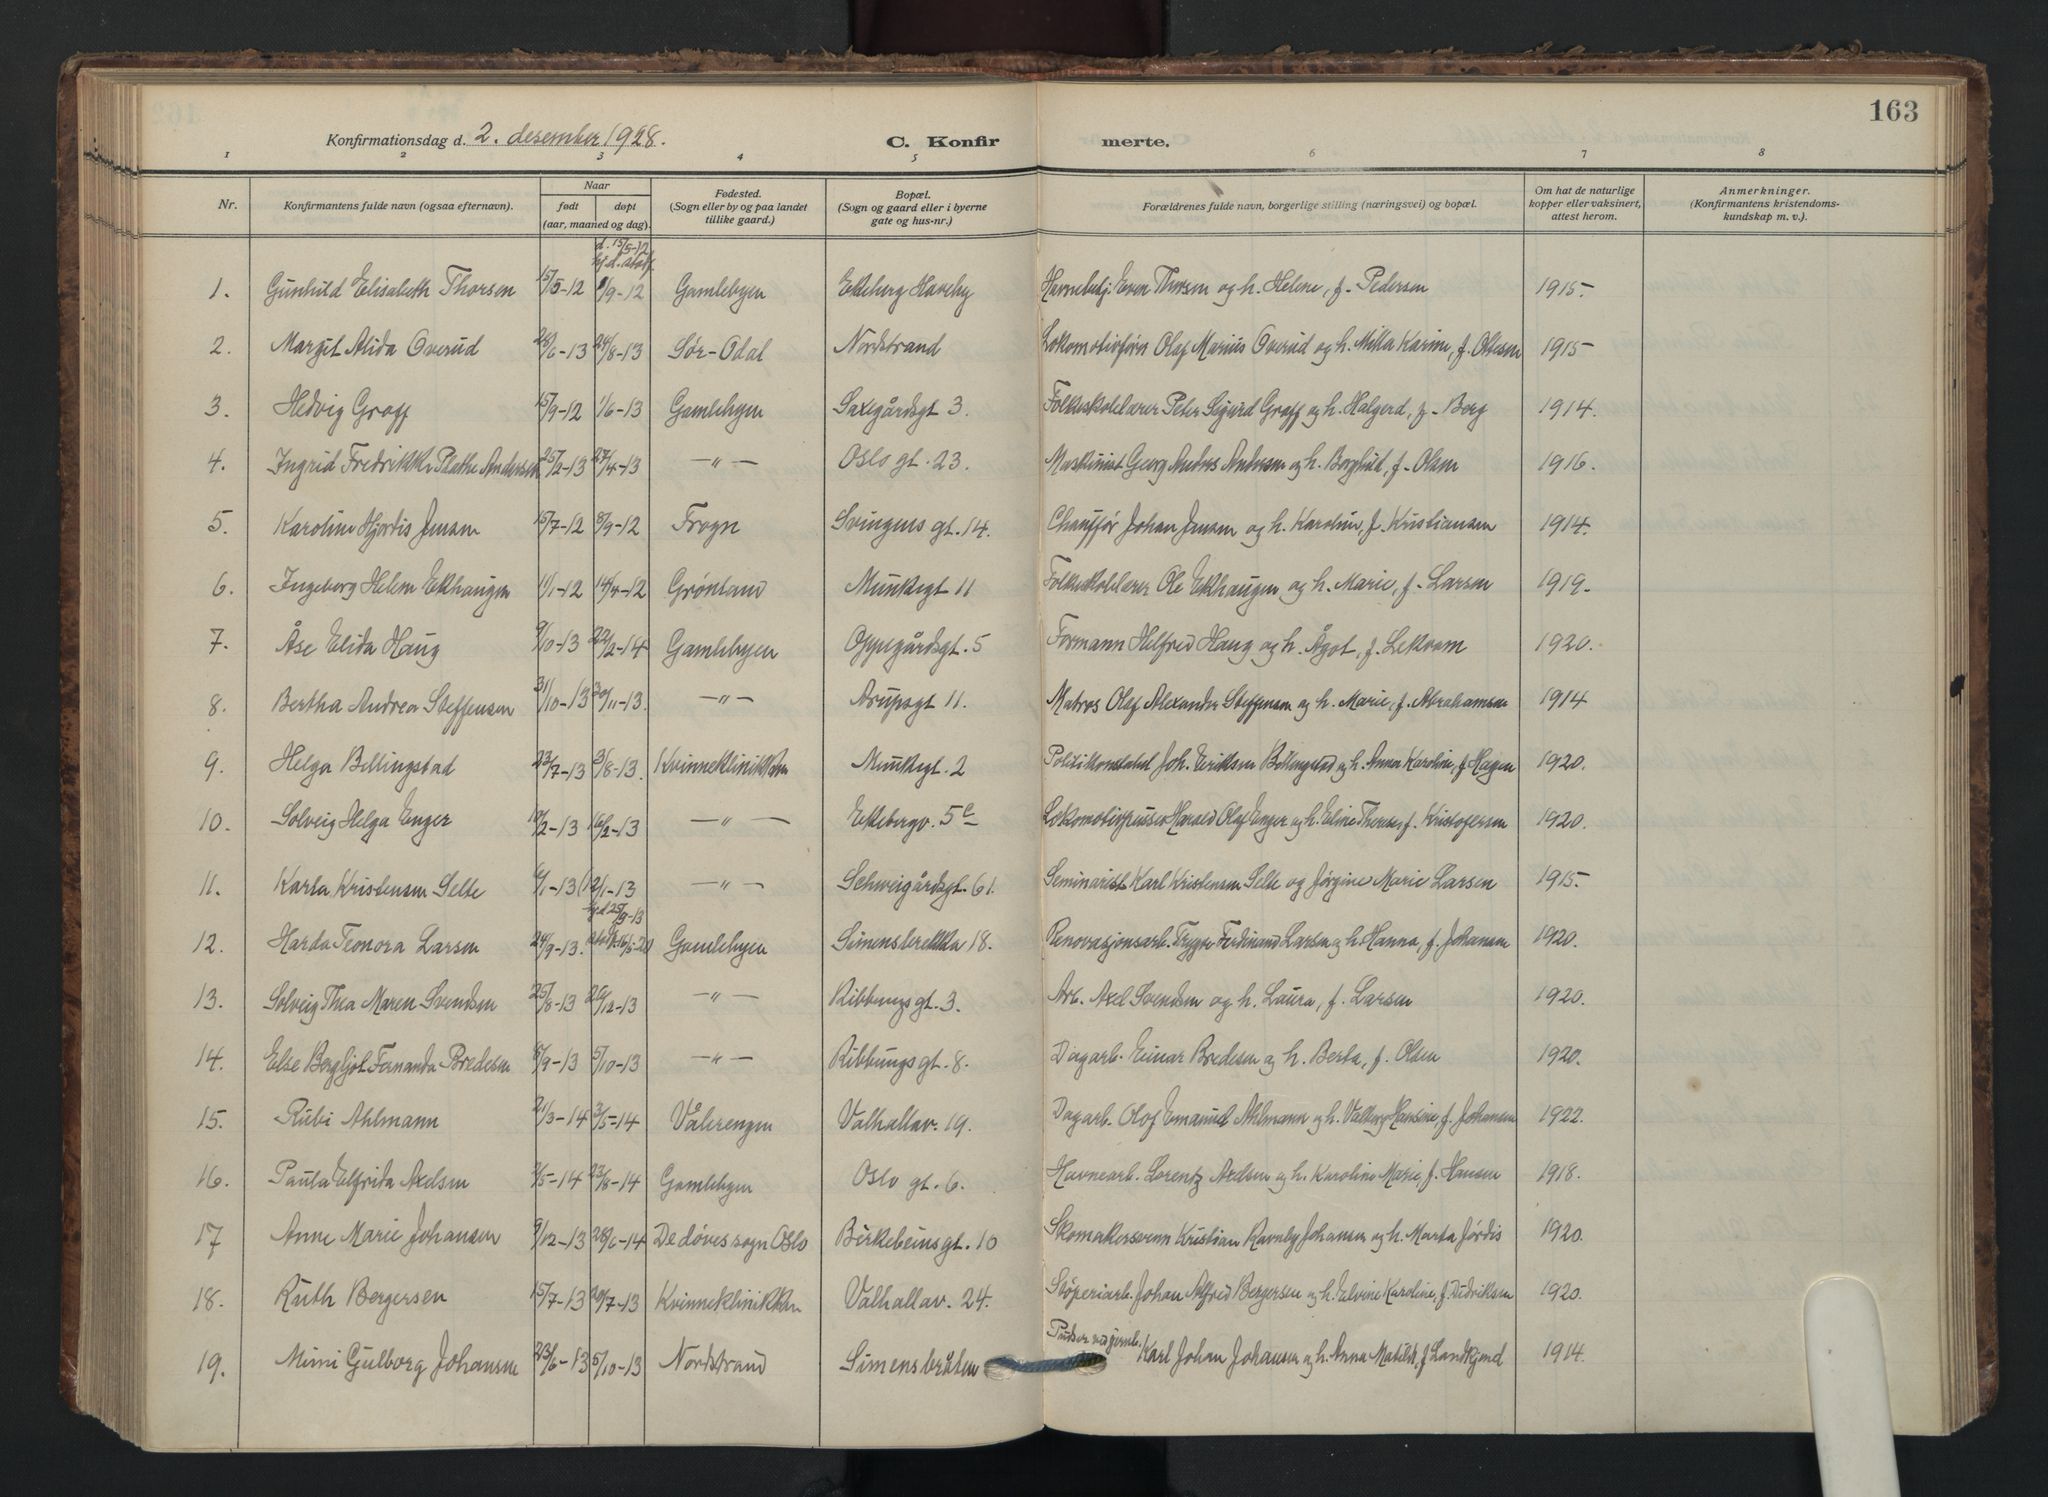 163
Konfirmationsdag d. 2. desember 1928.
C. Konfirmerte.
1 2 3 4 5 6 7 8
Nr. Konfirmantens fulde navn (ogsaa efternavn). Naar født døpt (aar, maaned og dag). Fødested. (Sogn eller by og paa landet tillike gaard.) Bopæl. (Sogn og gaard eller i byerne gate og hus-nr.) Forældrenes fulde navn, borgerlige stilling (næringsvei) og bopæl. Om hat de naturlige kopper eller vaksinert, attest herom. Anmerkninger. (Konfirmantens kristendomskundskap m. v.).
d. 15/5-12
1. Gunhild Elisabeth Thorsen 15/5-12 1/9-12 Gamlebyen Ekeberg Haveby Even Thorsen og h. Helene, f. Pedersen 1915.
2. Margit Alida Overud 28/6-13 24/8-13 Sør-Odal Nordstrand Lokomotivførr Olaf Marius Overud og h. Milla Karine, f. Olsen 1915
3. Hedvig Graff 15/9-12 1/6-13 Gamlebyen Saxegårdsgt 3. Folkeskolelærer Peter Sigurd Graff og h. Halgerd, f. Berg 1914.
4. Ingrid Fredrikke Plathe Andersen 25/2-13 27/4-13 —"— Oslo gt. 23. Maskinist Georg Anders Andersen og h. Borghild, f. Olsen 1916.
5. Karoline Hjørdis Jensen 15/7-12 8/9-12 Frogn Svingens gt. 14. Chauffør Johan Jensen og h. Karoline, f. Kristiansen 1914.
6. Ingeborg Helene Ekhaugen 11/1-12 14/4-12 Grønland Munkegt 11 Folkeskolelærer Ole Ekhaugen og h. Marie, f. Larsen 1919.
7. Åse Elida Haug 9/10-13 22/2-14 Gamlebyen Oppegårdsgt. 5 Formann Helfred Haug og h. Ågot, f. Lekvam 1920.
8. Bertha Andrea Steffensen 31/10-13 30/11-13. —"— Arupsgt 11. Matros Olaf Alexander Steffensen og h. Marie, f. Abrahamsen 1914
9. Helga Billingstad 23/7-13 3/8-13. Kvinneklinikken Munkegt. 2 Politikonstabel Joh. Eriksen Billingstad og h. Anna Karoline, f. Hagen 1920.
10. Solveig Helga Enger 10/2-13 16/2-13 —"— Ekebergv. 5c Lokomotivpusser Harald Olaf Enger og h. Eline Therese, f. Kristofersen 1920.
11. Karla Kristensen Selte 6/1-13 12/1-13 —"— Schweigårdsgt. 61. Seminarist Karl Kristensen Selte og Jørgine Marie Larsen 1915.
12. Harda Teonora Larsen 24/9-13. Gamlebyen Simensbrekka 18. Renovasjonsarb. Trygve Ferdinand Larsen og h. Hanna, f. Johansen 1920.
13. Solveig Thea Maren Svendsen 25/8-13 26/12-13 —"— Ribbungs gt. 3. Arb. Axel Svendsen og h. Laura, f. Larsen 1920.
14. Else Bergljot Fernanda Bredesen 8/9-13 5/10-13 —"— Ribbungs gt. 8. Dagarb. Einar Bredesen og h. Berta, f. Olsen 1920.
15. Rubi Ahlmann 21/3-14 3/5-14 Vålerengen Valhallav. 19. Dagarb. Olof Emanuel Ahlmann og h. Valborg Hansine, f. Johansen 1922.
16. Paula Elfrida Axelsen 3/5-14 23/8-14 Gamlebyen Oslo gt. 6. Havnearb. Lorentz Axelsen og h. Karoline Marie, f. Hansen 1918.
17 Anne Marie Johansen 9/12-13 28/6-14 De døves sogn Oslo Birkebeins gt. 10 Skomakersvenn Kristian Ravnby Johansen og h. Marta Jørdis 1920.
18. Ruth Bergersen 15/7-13 20/7-13 Kvinneklinikken Valhallav. 24. Støperiarb. Johan Alfred Bergersen og h. Elvine Karoline, f. Didriksen 1920.
19. Mimi Gulborg Johansen 23/6-13 5/10-13 Nordstrand Simensbråten Pusser ved jernb. Karl Johan Johansen og h. Anna Matilde, f. Landkjend 1914.